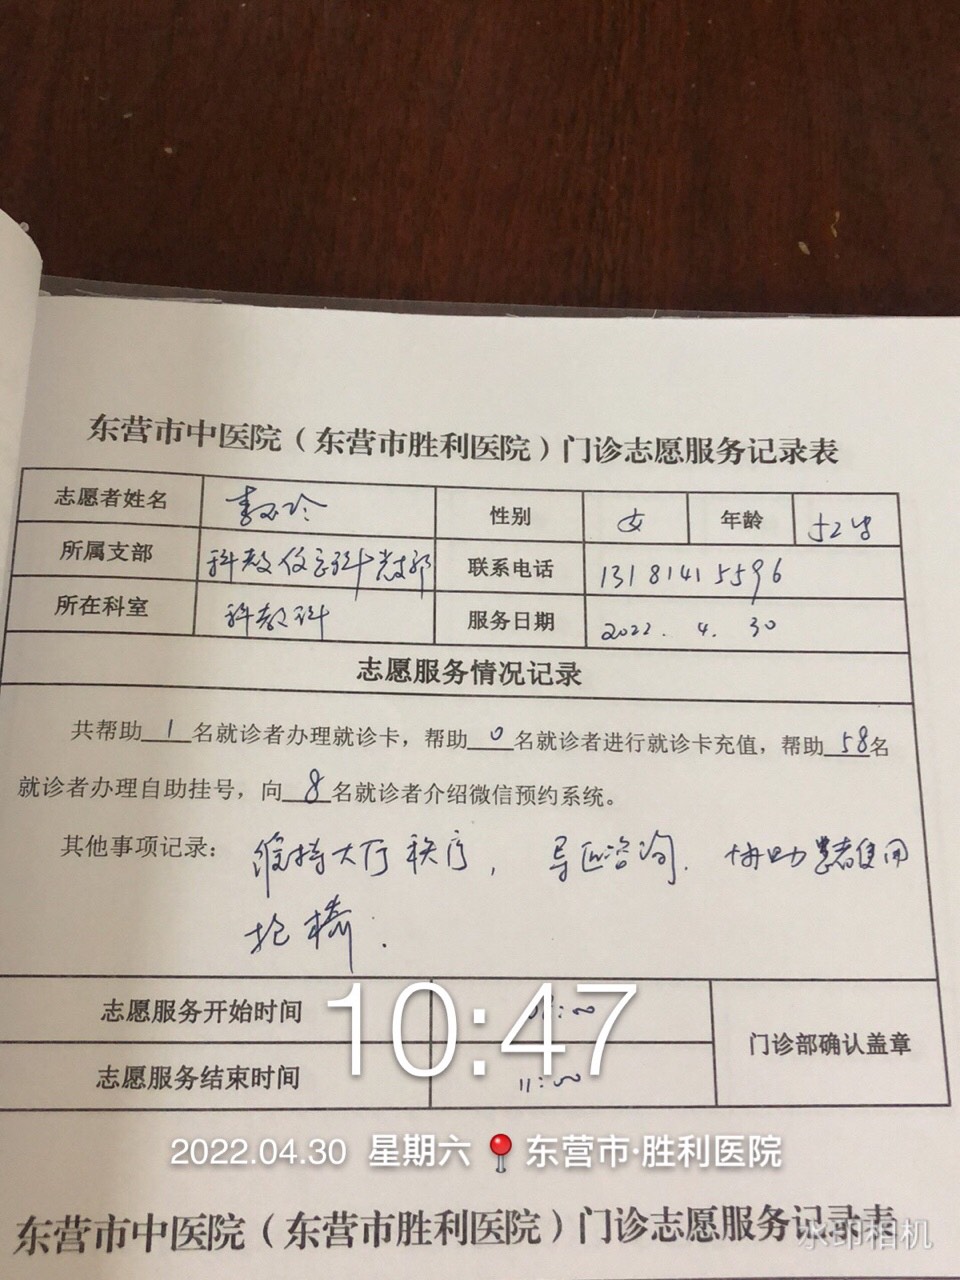 东营市中医院（东营市胜利医院）门诊志愿服务记录表
志愿者姓名 性别 女 年龄 52岁
所属支部 科教信息科党支部 联系电话 13181415596
所在科室 科教科 服务日期 2022.4.30
志愿服务情况记录
共帮助 1 名就诊者办理就诊卡，帮助 0 名就诊者进行就诊卡充值，帮助 58 名
就诊者办理自助挂号，向 8 名就诊者介绍微信预约系统。
其他事项记录： 维持大厅秩序，导医咨询，协助患者使用
轮椅.
志愿服务开始时间
10:47
门诊部确认盖章
志愿服务结束时间 11:00
2022.04.30 星期六 东营市·胜利医院
东营市中医院（东营市胜利医院）门诊志愿服务记录表
水印相机